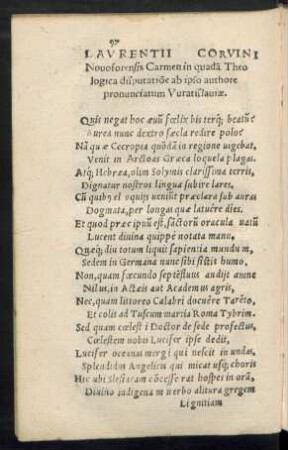 LAVRENTII CORVINI
Nouoforensis Carmen in quadã Theo
logica disputatiõe ab ipso authore
pronunciatum Vratislauiæ.
Quis negat hoc æuũ fœlix bis terq; beatũ?
Aurea nunc dextro sæcla redire polo?
Nã quæ Cecropia quõdã in regione uigebat,
Venit in Arctoas Græca loquela plagas.
Atq; Hebræa, olim Solymis clarissima terris,
Dignatur nostros lingua subire lares,
Cũ quibꝰ el oquijs uenitũt præclara sub auras
Dogmata, per longas quæ latuêre dies.
Et quod præcipuũ est, sactorũ oracula uatũ
Lucent diuina quippe notata manu,
Quæq; diu totum liquit sapientia mundum,
Sedem in Germana nunc sibi sistit humo,
Non, quam fœcundo septẽfluus audijt amne
Nilus, in Actæis aut Academus agris,
Nec, quam littoreo Calabri docuêre Tarẽto,
Et colis ad Tuscum martia Roma Tybrim.
Sed quam cœlesti Doctor de sede profectus,
Cœlestem nobis Lucifer ipse dedit,
Lucifer oceanas mergi qui nescit in undas,
Splendidus Angelicis qui micat usq; choris
Hic ubi Slesiacam cõcesse rat hospes in orã,
Diuino indigena m uerbo alitura gregem
Lignitiam